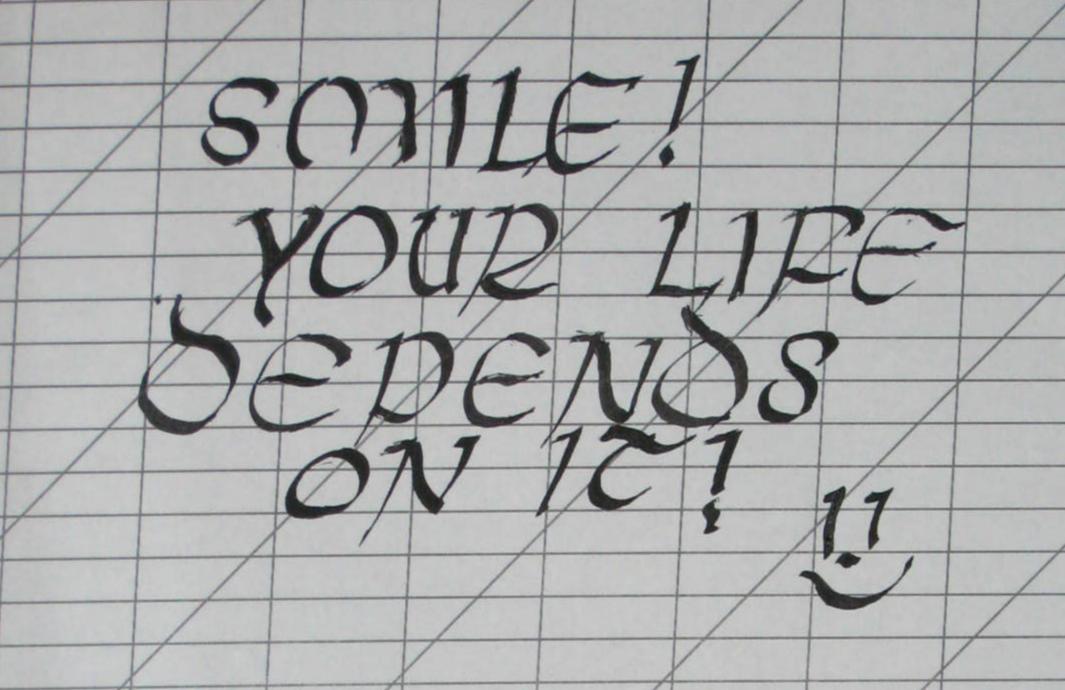 SMILE!
YOUR LIFE
DEPENDS
ON IT!